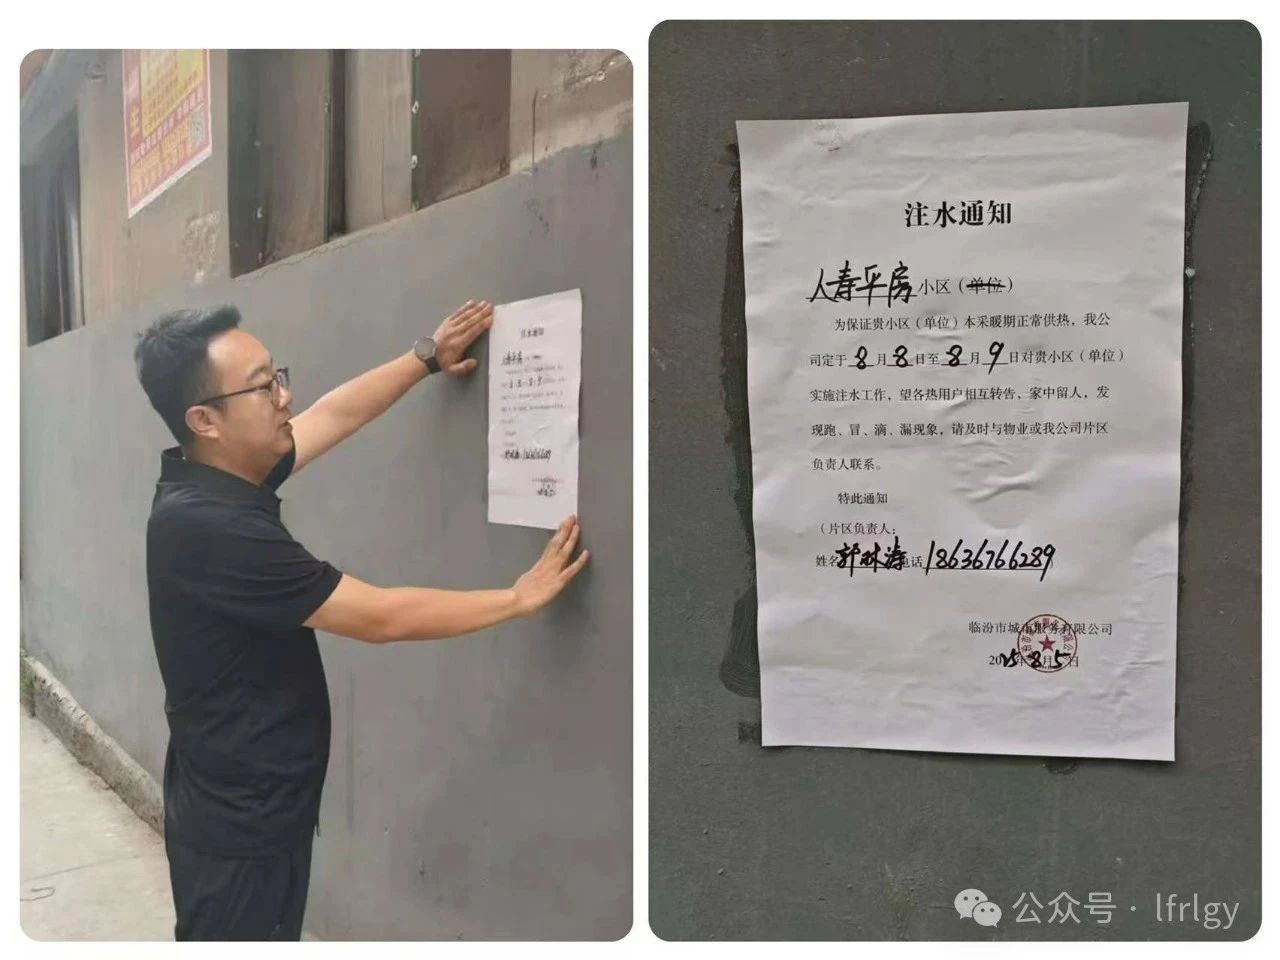 注水通知
人寿平房小区（单位）
为保证贵小区（单位）本采暖期正常供热，我公
司定于8月8日至8月9日对贵小区（单位）
实施注水工作，望各热用户相互转告，家中留人，发
现跑、冒、滴、漏现象，请及时与物业或我公司片区
负责人联系。
特此通知
（片区负责人：
姓名 电话18636766289）
临汾市城市服务有限公司
2025年8月5日
注水通知
公众号 · lfrlgy